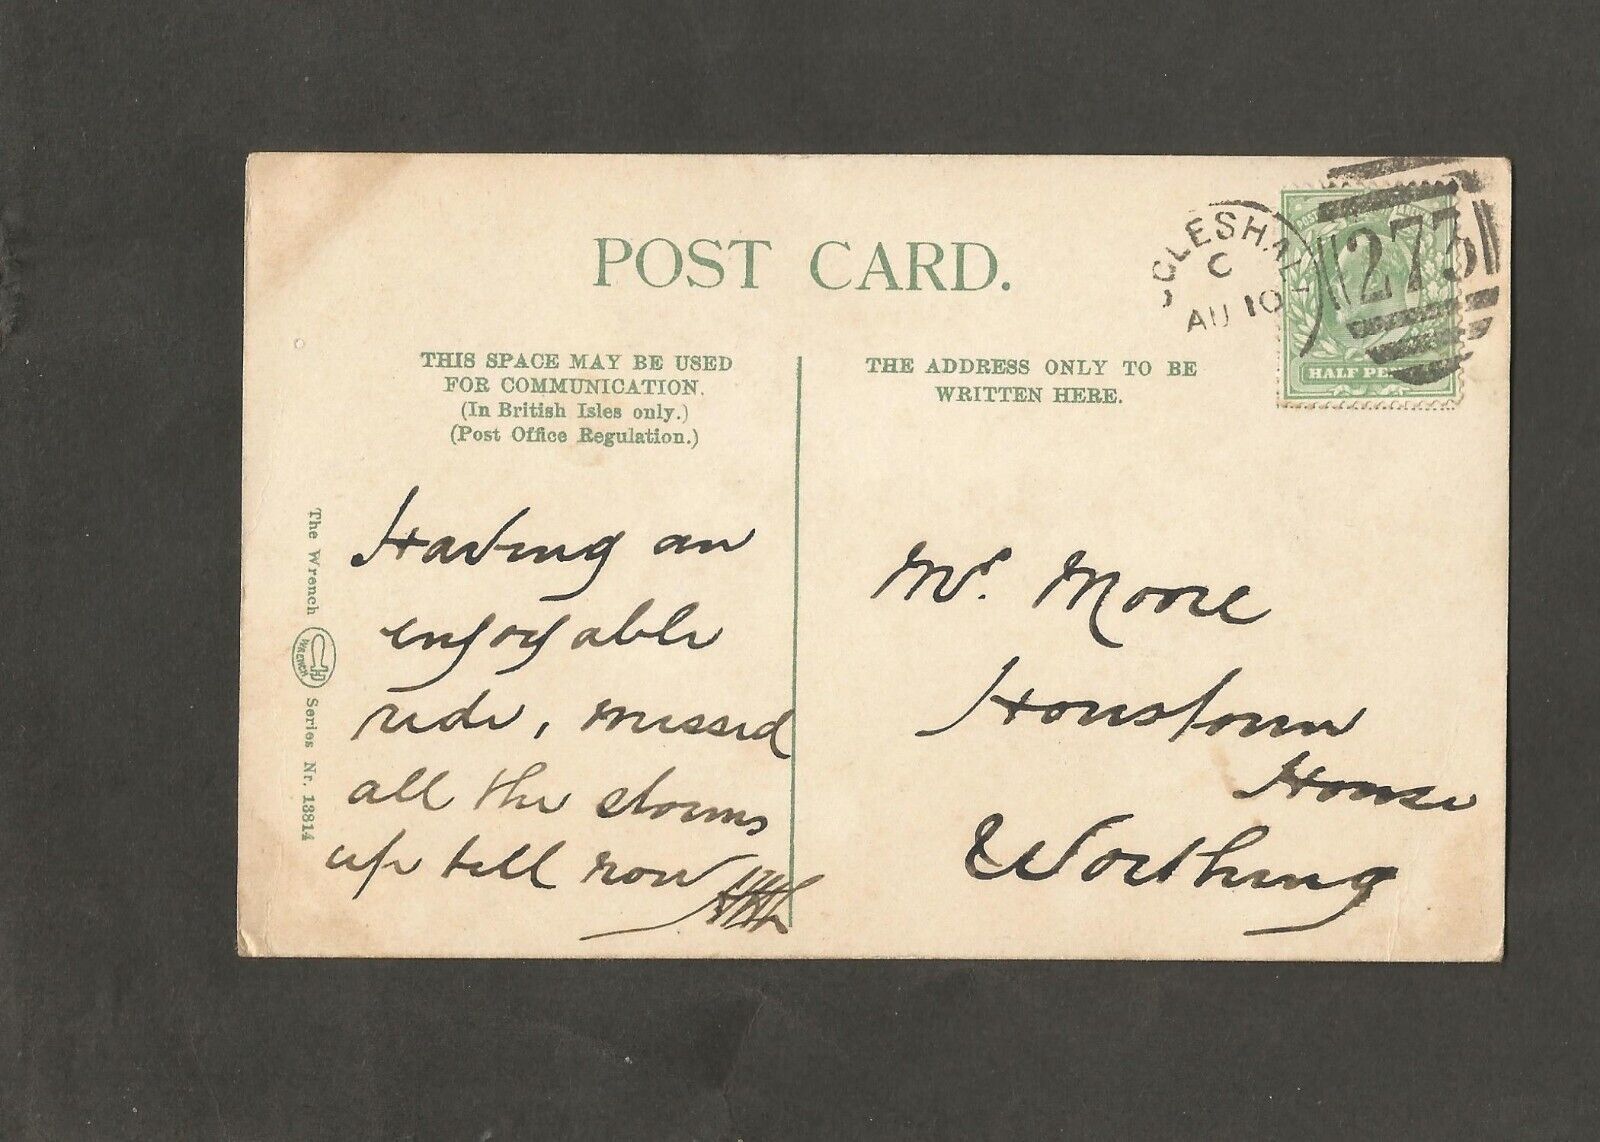 POST CARD.
THIS SPACE MAY BE USED
FOR COMMUNICATION.
(In British Isles only.)
(Post Office Regulation.)
THE ADDRESS ONLY TO BE
WRITTEN HERE.
CLESHAL
C
AU 10
273
HALF PE
The Wrench
WRENCH
Series Nr. 13814
Having an
enjoyable
ride, missed
all the storms
up till now
Mr. Moore
House
Worthing